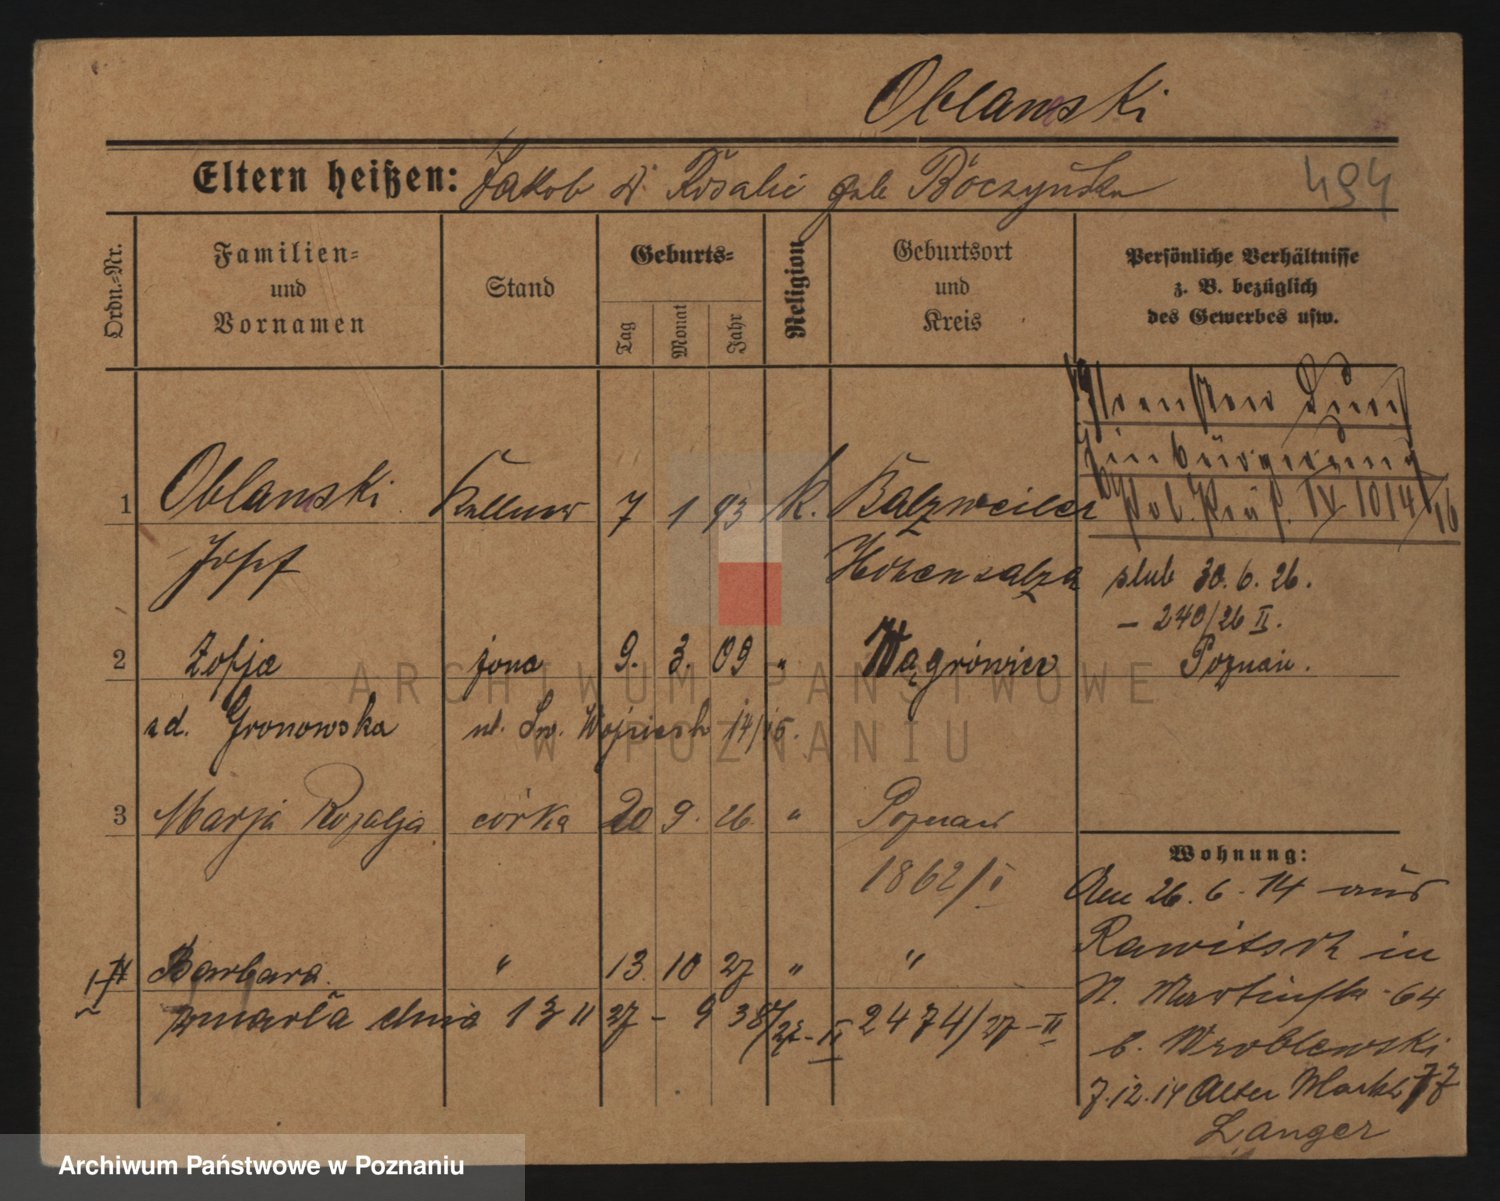 Oblanski
Eltern heißen: Jakob & Rosalie geb Böczyńska
494
Ordn.-Nr.
Familien-
und
Vornamen
Stand
Geburts-
Tag
Monat
Jahr
Religion
Geburtsort
und
Kreis
Persönliche Verhältnisse
z. B. bezüglich
des Gewerbes usw.
Preußen durch
Einbürgerung
Pol. Präs. IV 1014/16
1 Oblanski Kellner 7 1 93 K. Balzweiler
Josef Hohensalza
ślub 30.6.26.
– 240/26 II.
Poznań.
2 Zofja żona 9. 3. 09 „ Wągrówiec
zd. Gronowska ul. Św. Wojciech 14/15.
3 Marja Rozalja córka 20 9. 26. „ Poznań
1862/I
Barbara. „ 13 10 27 „ „
zmarła dnia 13 11 27 – 938/27-II 2474/27-II
Wohnung:
Am 26.6.14 aus
Rawitsch in
St. Martinstr. 64
b. Wroblewski
7.12.14 Alter Markt 77
Langer
ARCHIWUM PAŃSTWOWE
W POZNANIU
Archiwum Państwowe w Poznaniu